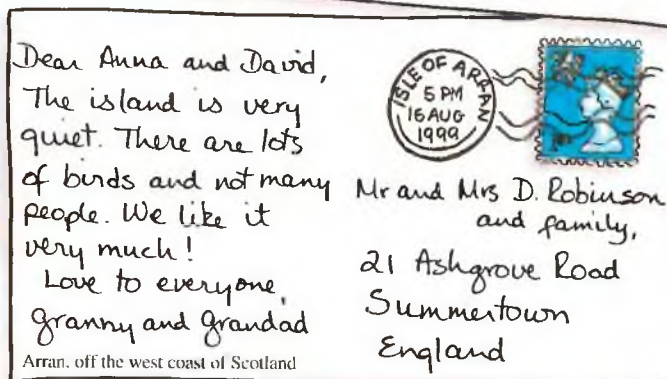 Dear Anna and David,
The island is very
quiet. There are lots
of birds and not many
people. We like it
very much!
Love to everyone,
granny and grandad
Arran, off the west coast of Scotland
ISLE OF ARRAN
5 PM
16 AUG
1999
Mr and Mrs D. Robinson
and family,
21 Ashgrove Road
Summertown
England